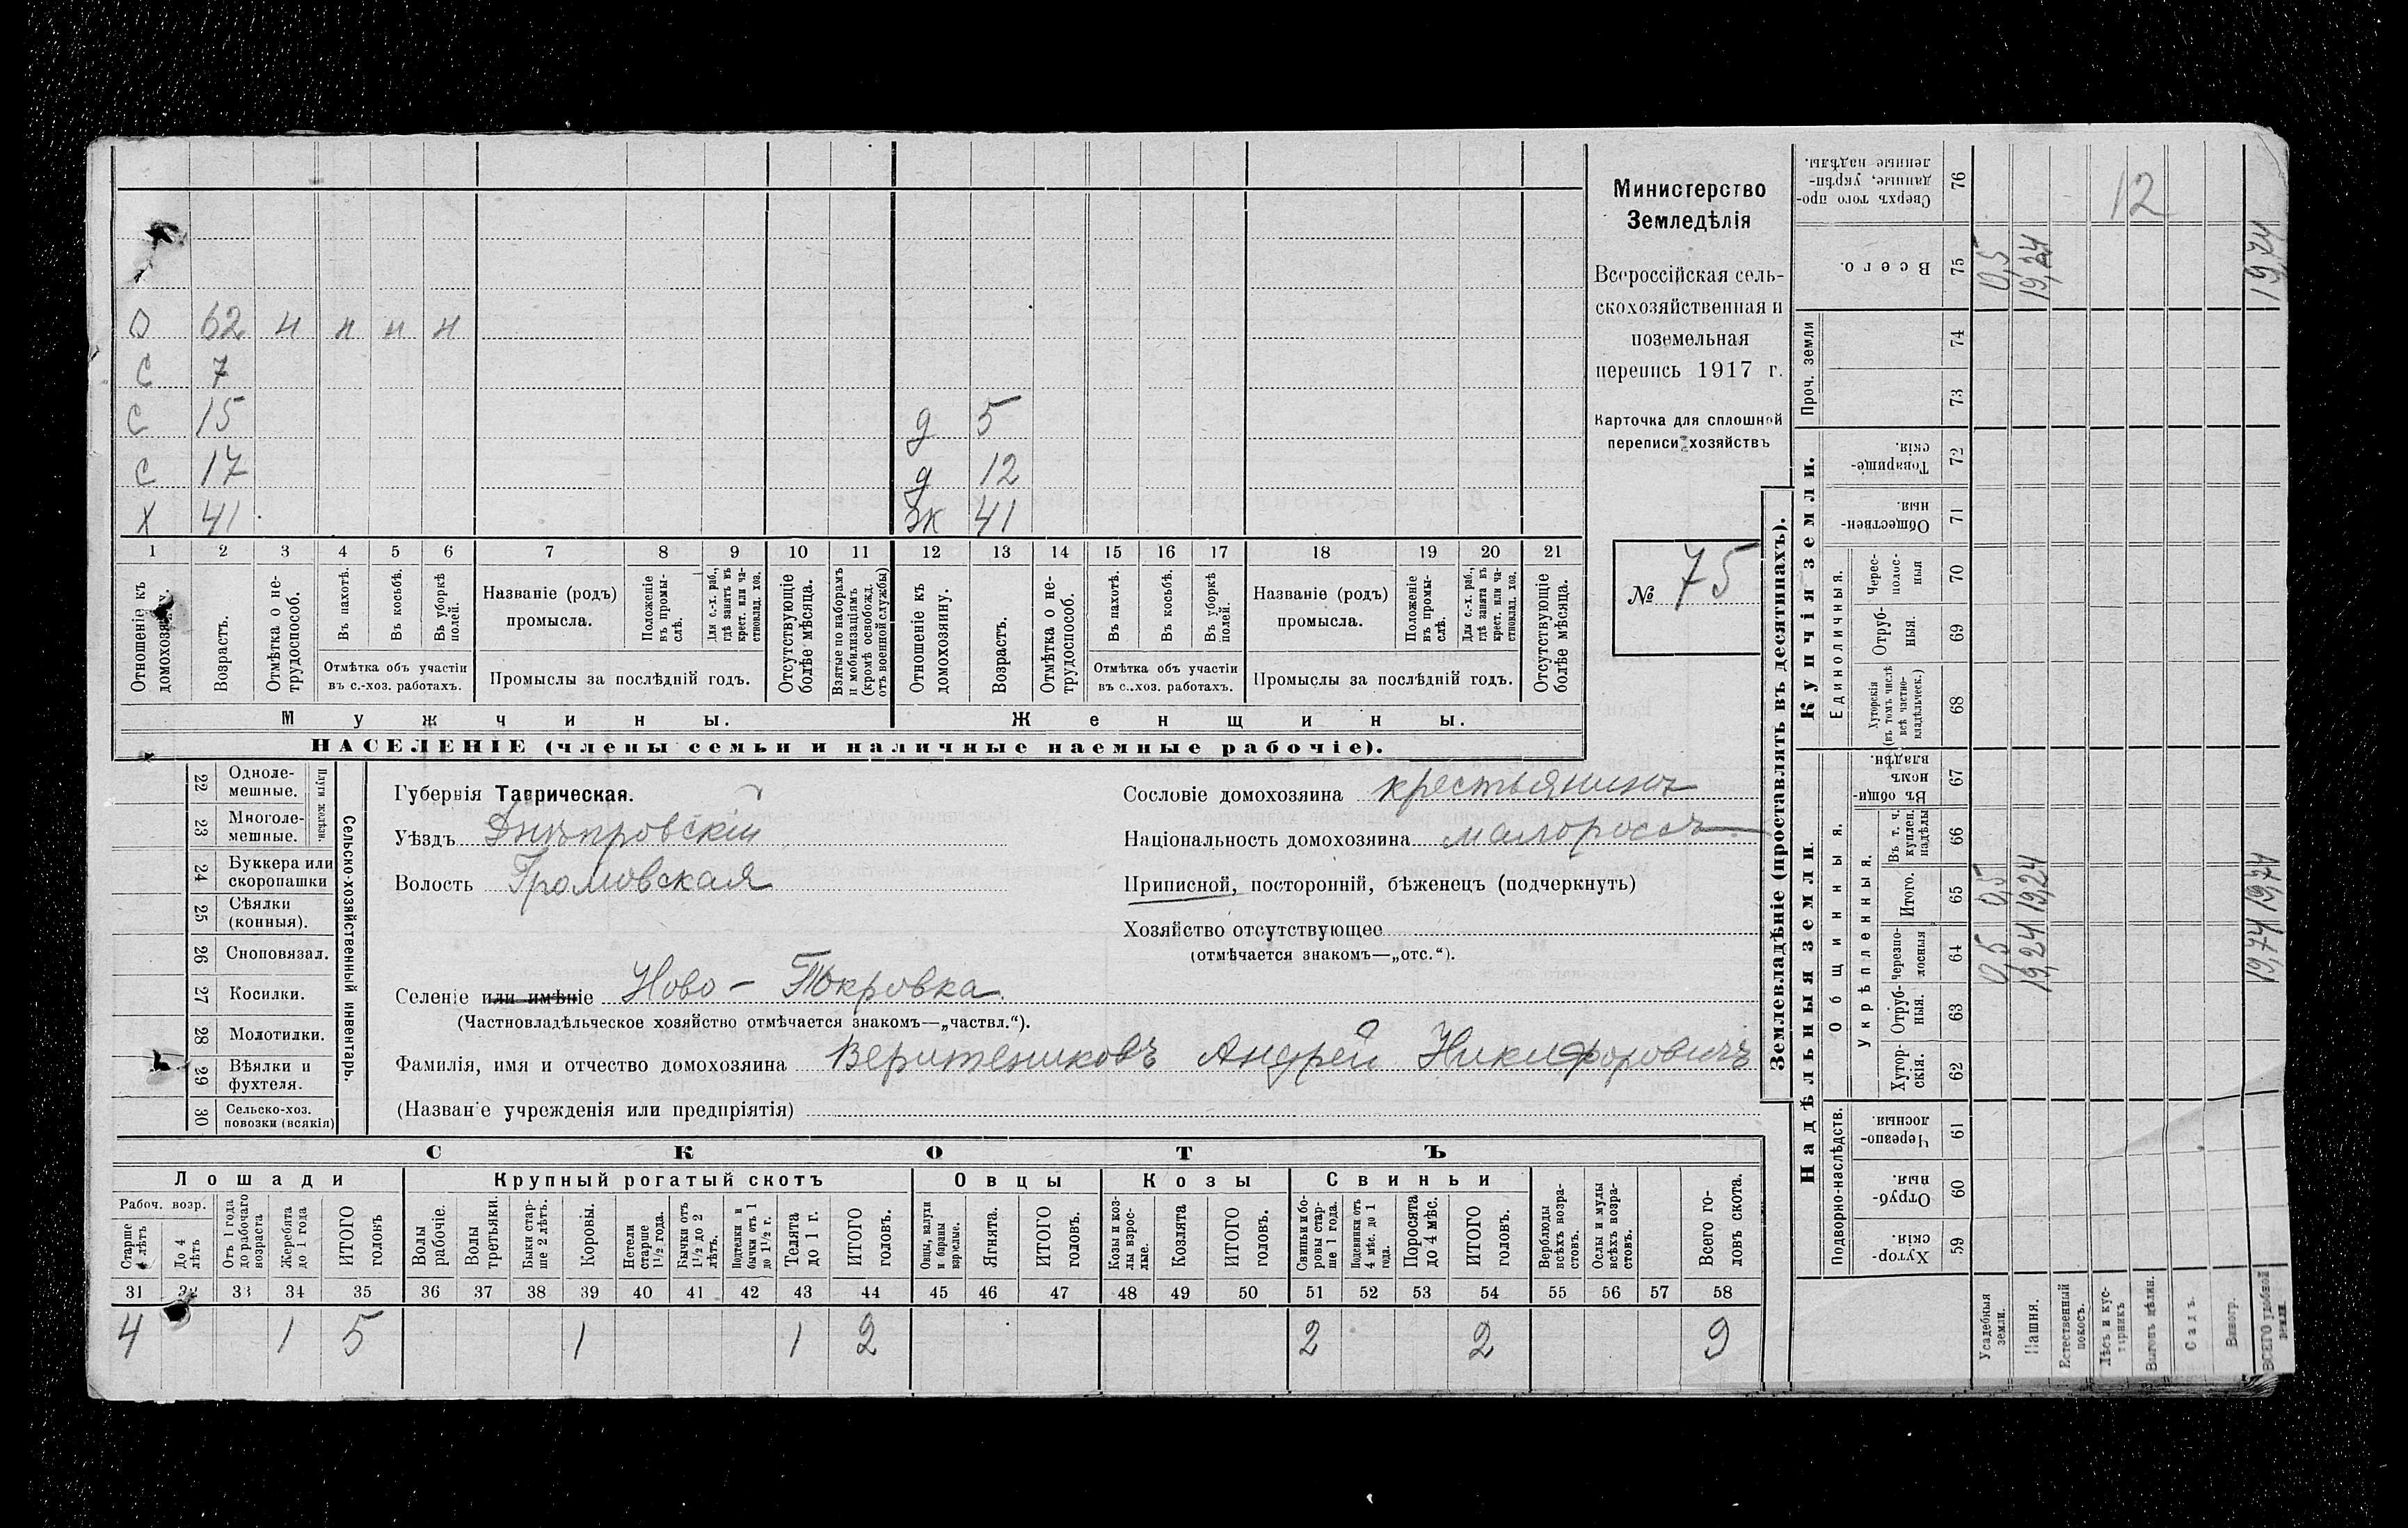 О 62 н н н н
С 7
С 15 д 5
С 17 д 12
Х 41 Ж 41
1 2 3 4 5 6 7 8 9 10 11 12 13 14 15 16 17 18 19 20 21
Отношеніе къ домохозяину.
Возрастъ.
Отмѣтка о не-
трудоспособ.
Въ пахотѣ.
Въ косьбѣ.
Въ уборкѣ
полей.
Отмѣтка объ участіи
въ с.-хоз. работахъ.
Названіе (родъ)
промысла.
Положеніе
въ промы-
слѣ.
Для с.-х. раб.,
гдѣ занятъ въ
крест. или ча-
стновлад. хоз.
Промыслы за послѣдній годъ.
Отсутствующіе
болѣе мѣсяца.
Взятые по наборамъ
и мобилизаціямъ
(кромѣ освобожд.
отъ военной службы)
Отношеніе къ
домохозяину.
Возрастъ.
Отмѣтка о не-
трудоспособ.
Въ пахотѣ.
Въ косьбѣ.
Въ уборкѣ
полей.
Отмѣтка объ участіи
въ с..хоз. работахъ.
Названіе (родъ)
промысла.
Положеніе
въ промы-
слѣ.
Для с.-х. раб.,
гдѣ занята въ
крест. или ча-
стновлад. хоз.
Промыслы за послѣдній годъ.
Отсутствующіе
болѣе мѣсяца.
Мужчины.
Женщины.
НАСЕЛЕНІЕ (члены семьи и наличные наемные рабочіе).
Министерство
Земледѣлія
Всероссійская сель-
скохозяйственная и
поземельная
перепись 1917 г.
Карточка для сплошной
переписи хозяйствъ
№ 75
22 Одноле-
мешные.
23 Многоле-
мешные.
Плуги желѣзн.
24 Буккера или
скоропашки
25 Сѣялки
(конныя).
26 Сноповязал.
27 Косилки.
28 Молотилки.
29 Вѣялки и
фухтеля.
30 Сельско-хоз.
повозки (всякія)
Сельско-хозяйственный инвентарь.
Губернія Таврическая.
Уѣздъ Днѣпровскій
Волость Громовская
Селеніе или имѣніе Ново-Покровка
(Частновладѣльческое хозяйство отмѣчается знакомъ—„частвл.“).
Фамилія, имя и отчество домохозяина Веритениковъ Андрей Никифоровичъ
(Названіе учрежденія или предпріятія)
Сословіе домохозяина крестьянинъ
Національность домохозяина малороссъ
Приписной, посторонній, бѣженецъ (подчеркнуть)
Хозяйство отсутствующее
(отмѣчается знакомъ—„отс.“).
СКОТЪ
Лошади
Рабоч. возр.
Старше
4 лѣтъ
До 4
лѣтъ
Отъ 1 года
до рабочаго
возраста
Жеребята
до 1 года
ИТОГО
головъ
Крупный рогатый скотъ
Волы
рабочіе.
Волы
третьяки.
Быки стар-
ше 2 лѣтъ.
Коровы.
Нетели
старше
1½ года.
Бычки отъ
1½ до 2
лѣтъ.
Подтелки и
бычки отъ 1
до 1½ г.
Телята
до 1 г.
ИТОГО
головъ.
Овцы
Овцы, валухи
и бараны
взрослые.
Ягнята.
ИТОГО
головъ.
Козы
Козы и коз-
лы взрос-
лые.
Козлята
ИТОГО
головъ.
Свиньи
Свиньи и бо-
ровы стар-
ше 1 года.
Подсвинки отъ
4 мѣс. до 1
года.
Поросята
до 4 мѣс.
ИТОГО
головъ.
Верблюды
всѣхъ возра-
стовъ.
Ослы и мулы
всѣхъ возра-
стовъ.
Всего го-
ловъ скота.
31 32 33 34 35 36 37 38 39 40 41 42 43 44 45 46 47 48 49 50 51 52 53 54 55 56 57 58
4 1 5 1 1 2 2 2 9
Землевладѣніе (проставлять въ десятинахъ).
Надѣльныя земли.
Подворно-наслѣдств.
Хутор-
скія. 59
Отруб-
ныя. 60
Черезпо-
лосныя. 61
Общинныя.
Укрѣпленныя.
Хутор-
скія. 62
Отруб-
ныя. 63
Черезпо-
лосныя 64
Итого. 65
Въ т. ч.
куплен.
надѣлы 66
Въ общи-
номъ
владѣн. 67
Купчія земли.
Единоличныя.
Хуторскія
(въ томъ числѣ
всѣ частно-
владѣльческ.) 68
Отруб-
ныя. 69
Черес-
полос-
ныя 70
Обществен-
ныя. 71
Товарище-
скія. 72
Проч. земли
73 74
Всего. 75
Сверхъ того про-
данные, укрѣп-
ленные надѣлы. 76
Усадебныя
земли. 0,5 0,5 0,5
Пашня. 19,24 19,24 19,24
Естественный
покосъ.
Лѣсъ и кус-
тарникъ
12
Выгонъ цѣлин.
Садъ.
Виногр.
ВСЕГО удобной
земли 19,74 19,74 19,74